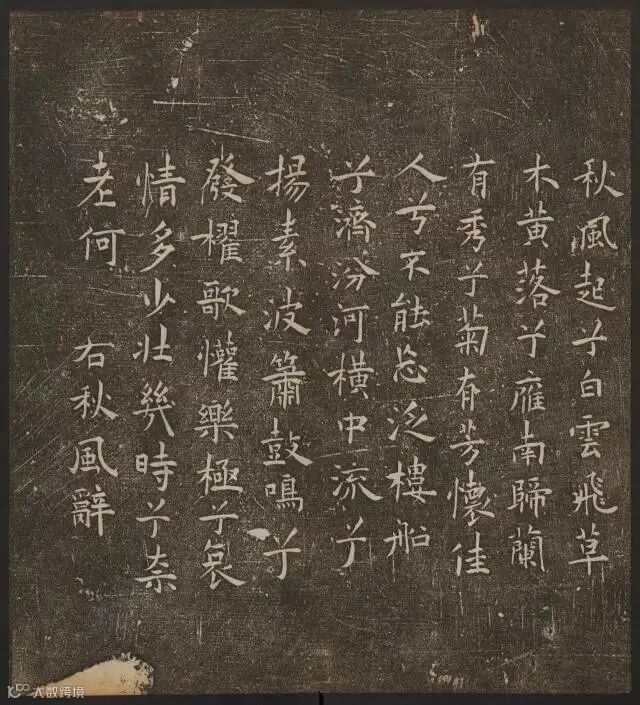 秋風起兮白雲飛草
木黃落兮雁南歸蘭
有秀兮菊有芳懷佳
人兮不能忘泛樓船
兮濟汾河橫中流兮
揚素波簫鼓鳴兮
發櫂歌懽樂極兮哀
情多少壯幾時兮柰
老何 右秋風辭
大数跨境